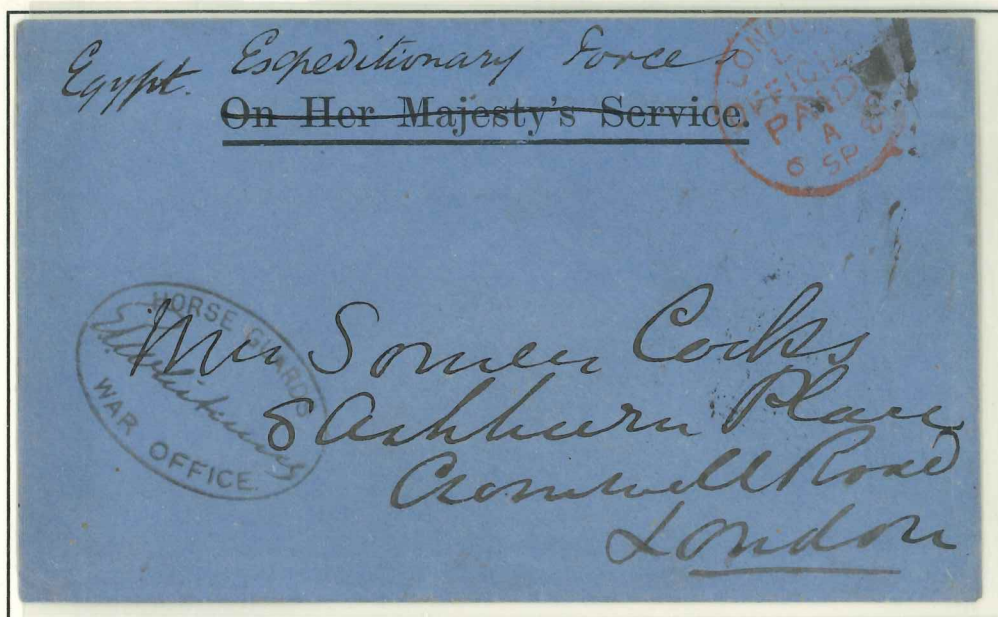 Egypt. Expeditionary Forces
On Her Majesty's Service.
LONDON
OFFICIAL
PAID
A
6 SP
HORSE GUARDS
WAR OFFICE.
Mrs Somers Cocks
8 Ashburn Place
Cromwell Road
London